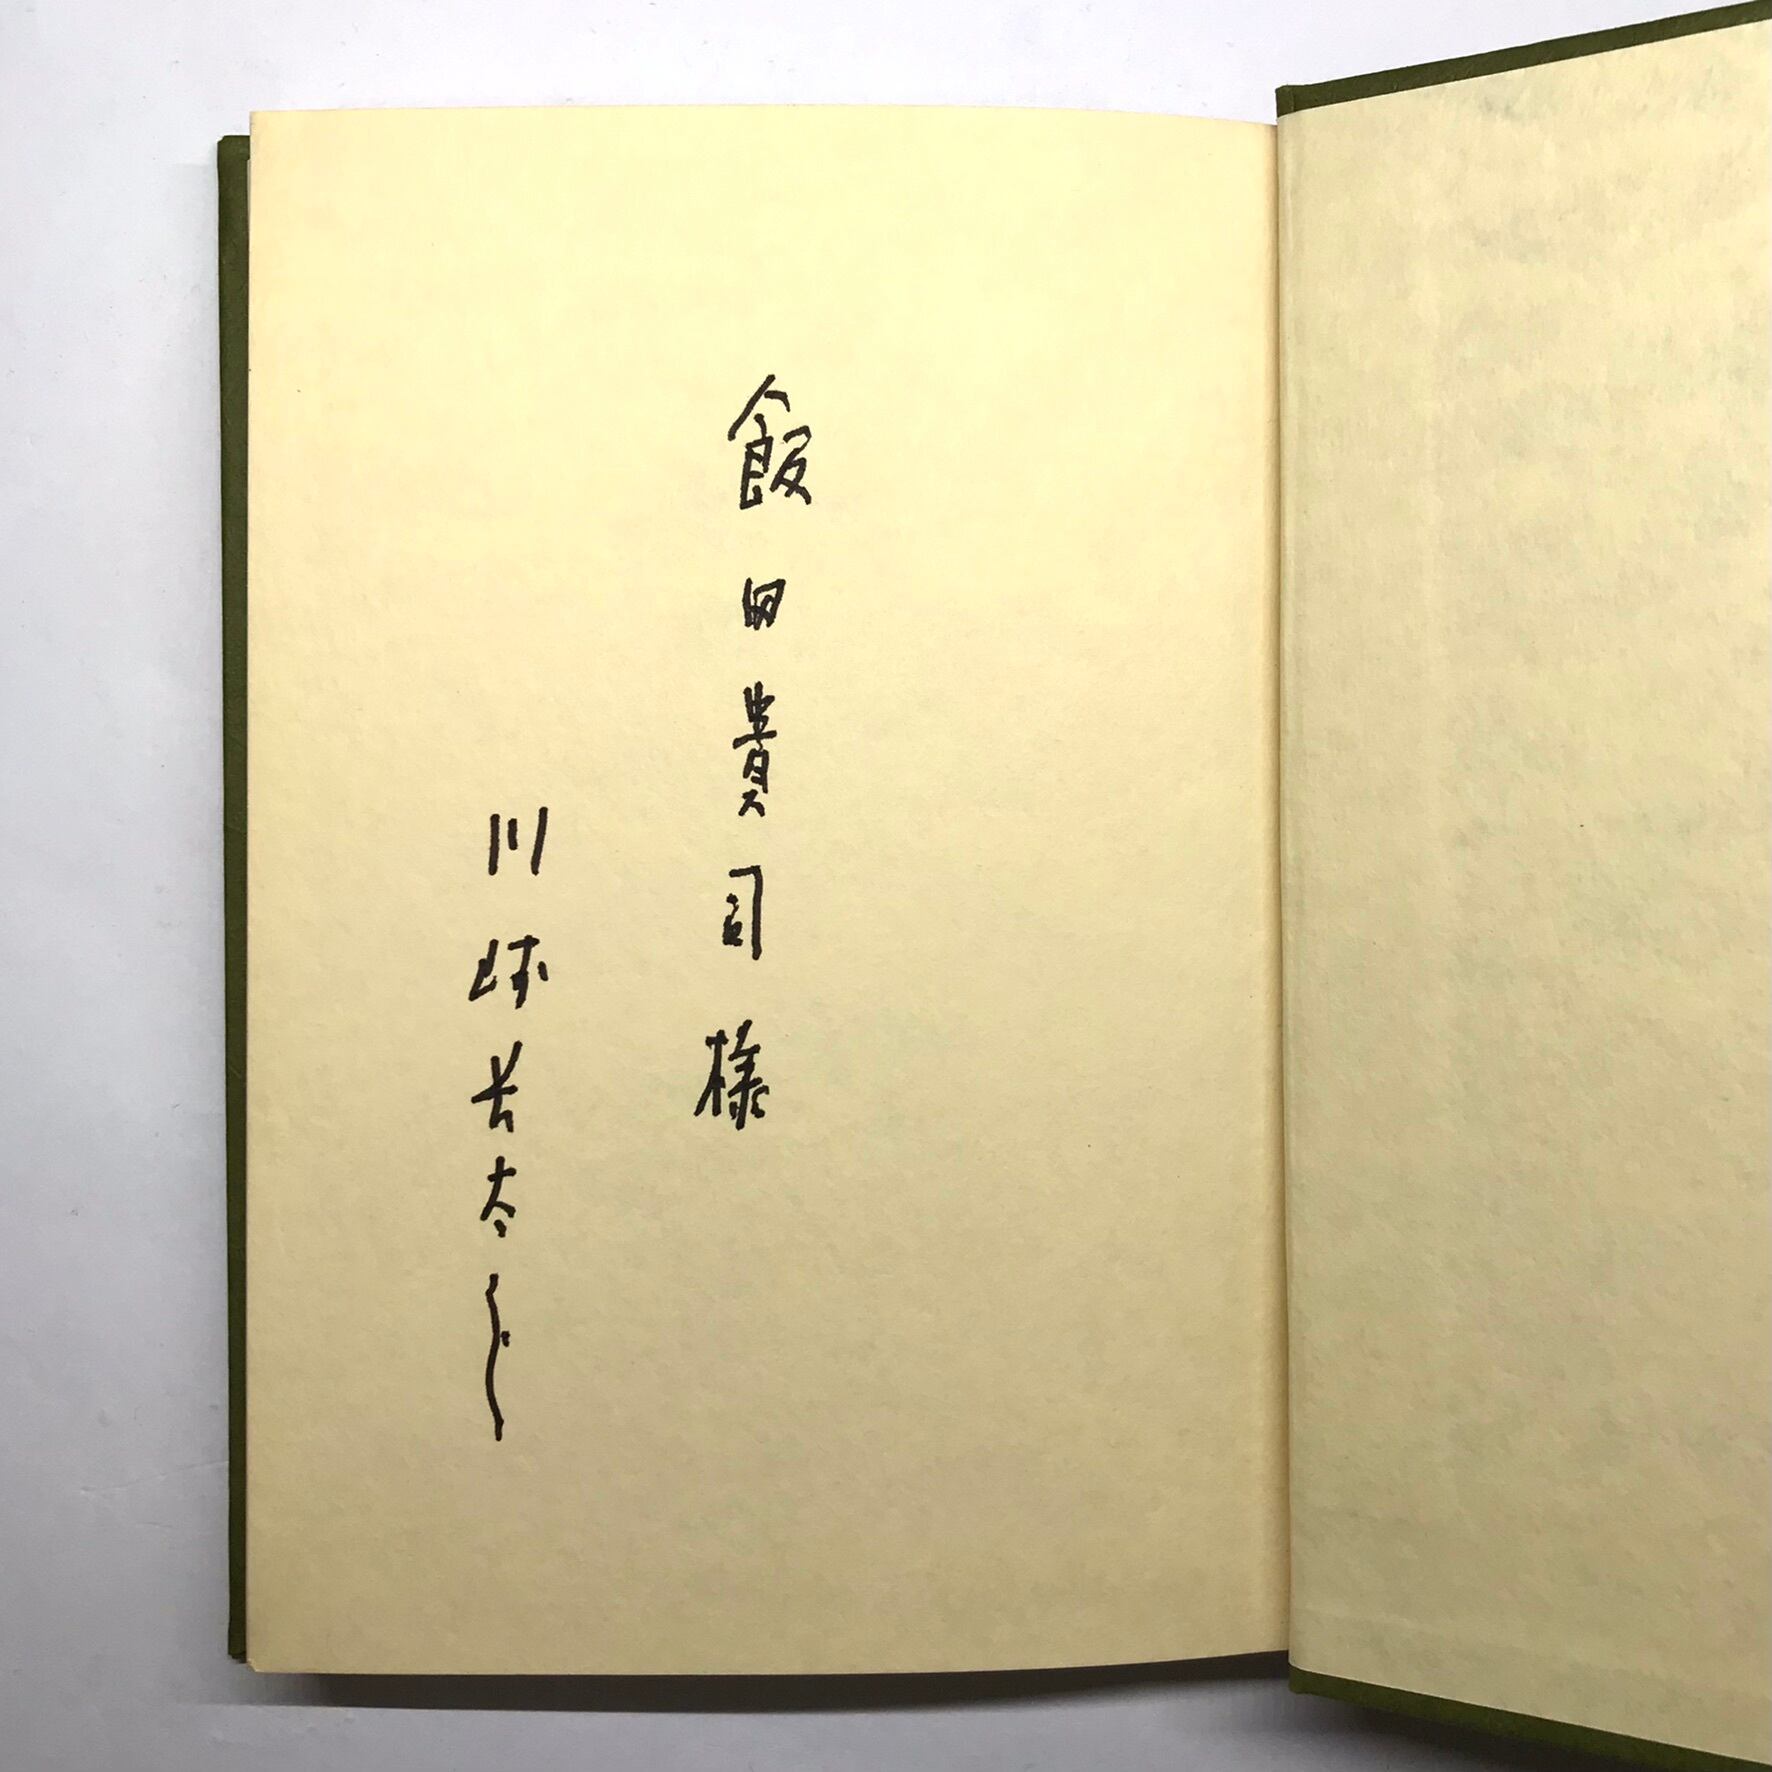 飯田貴司様
川崎長太郎